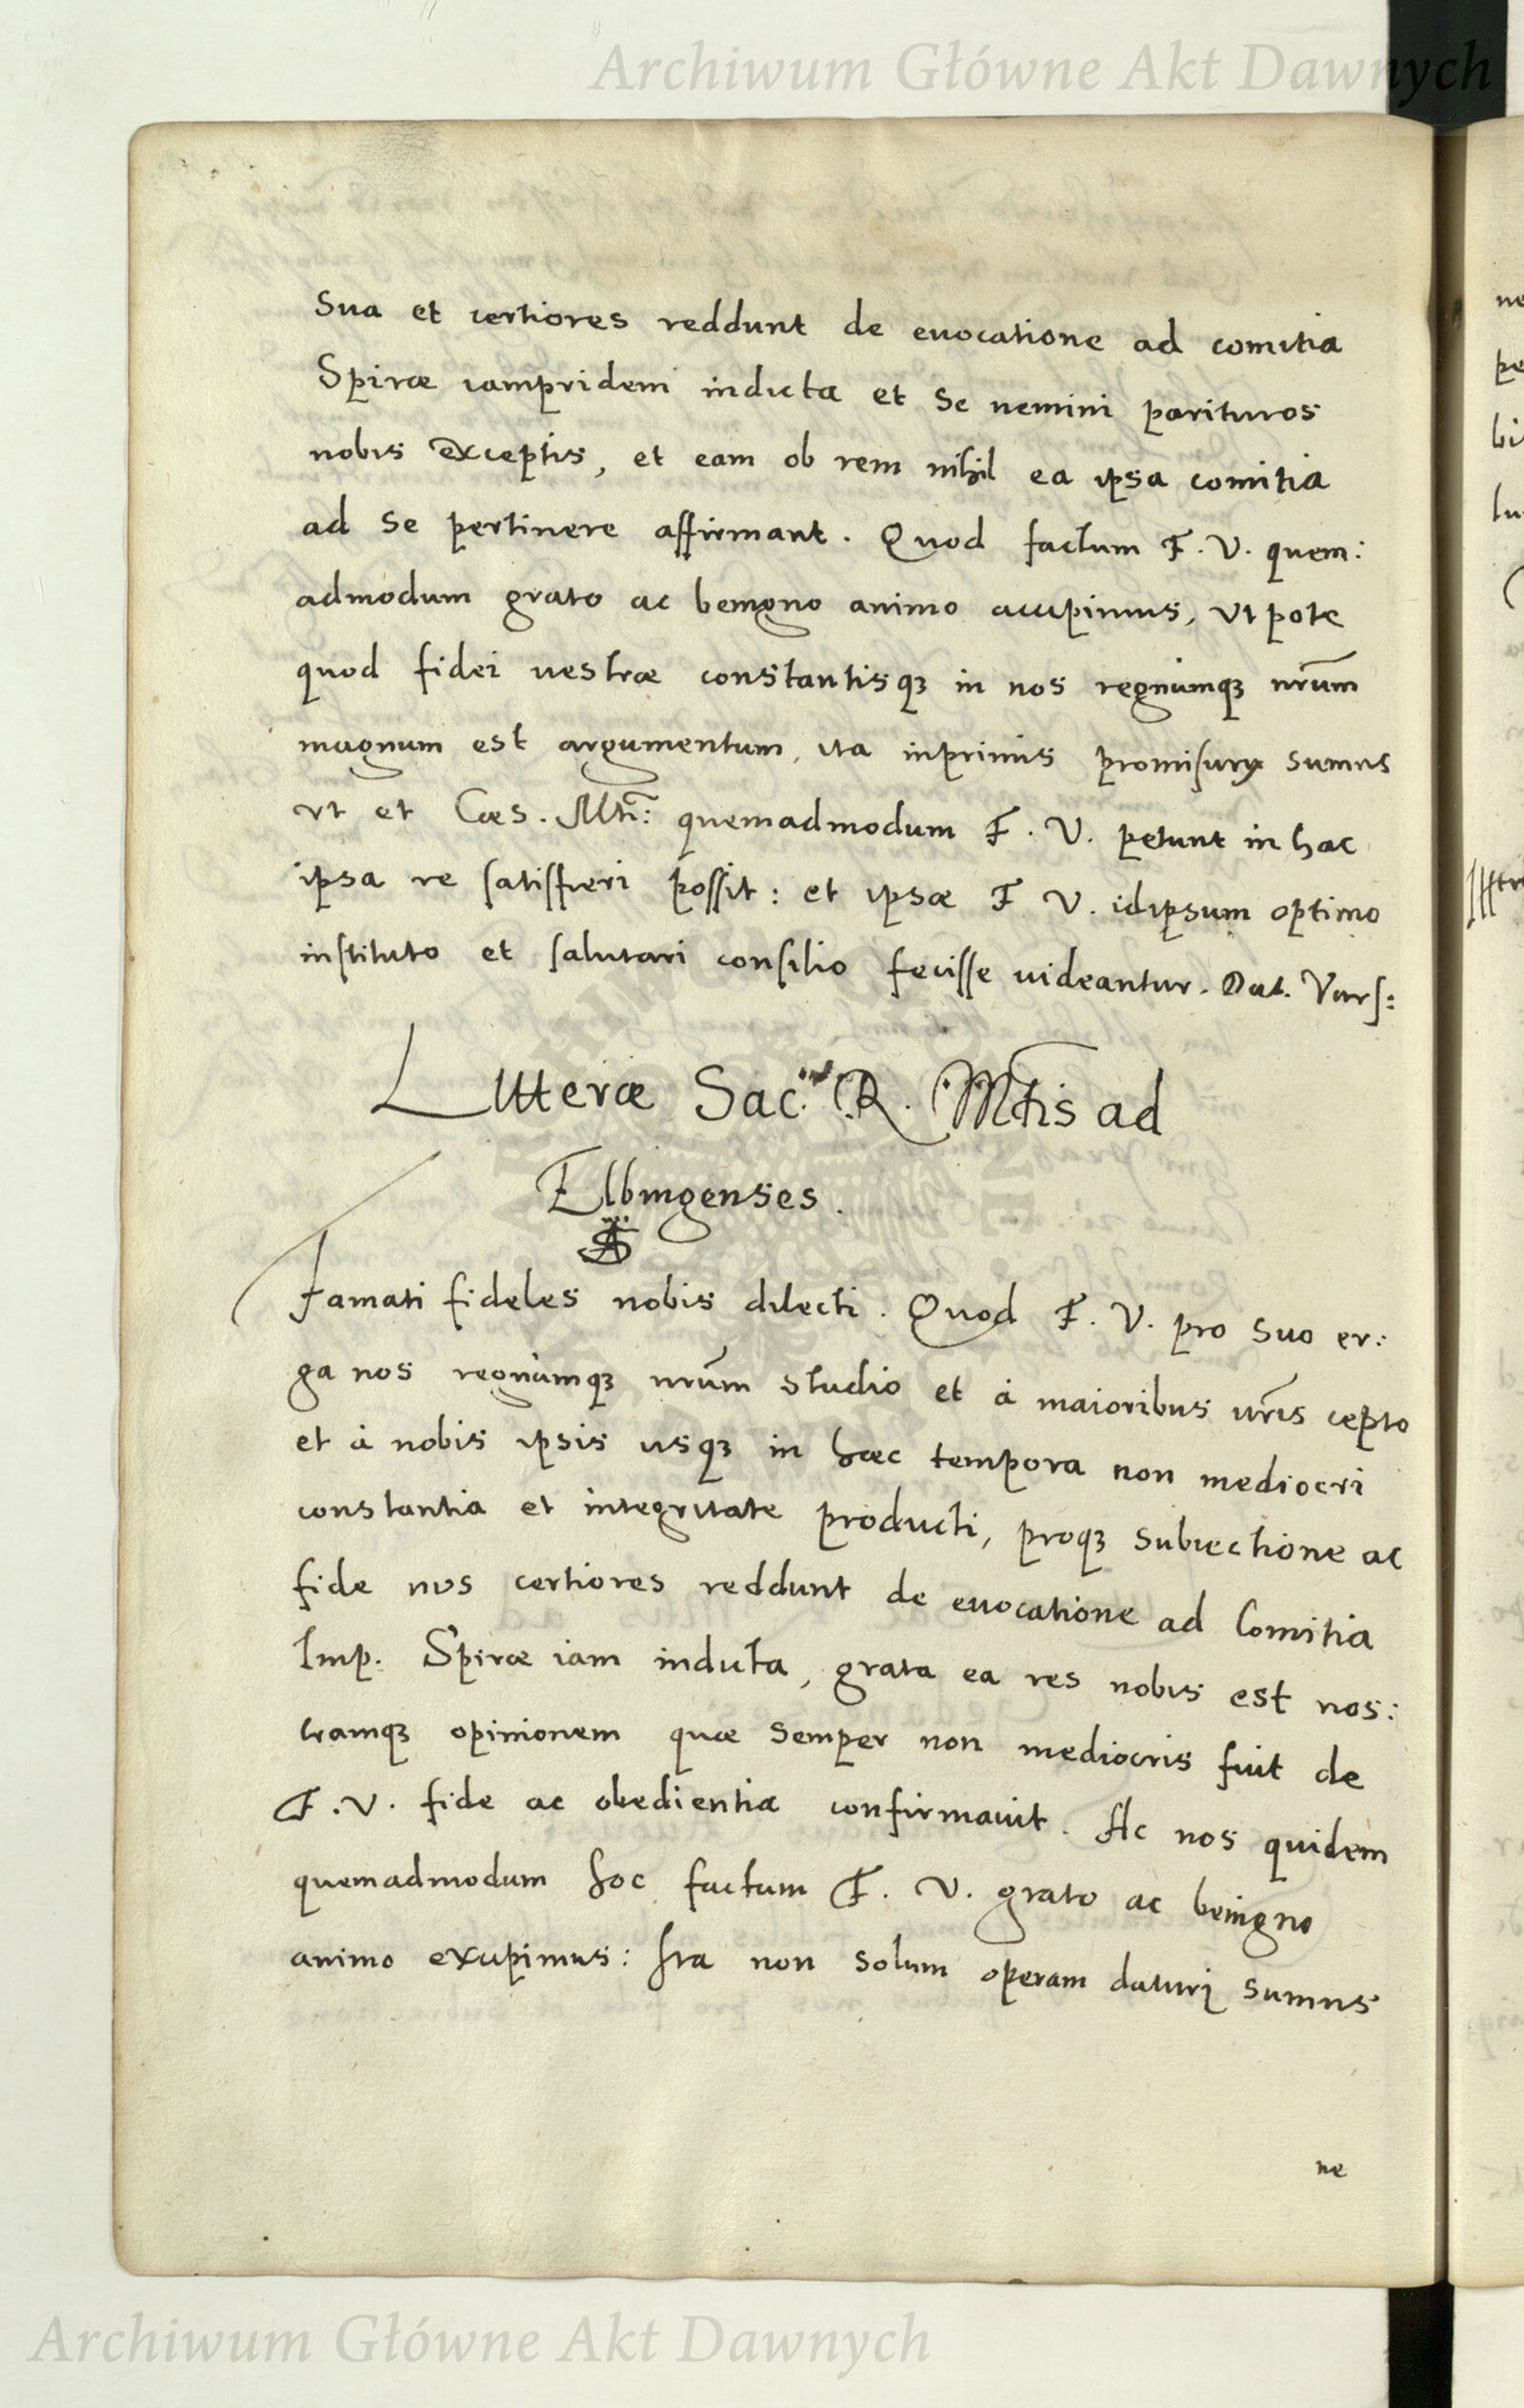 Archiwum Główne Akt Dawnych
Sua et certiores reddunt de euocatione ad comitia
Spiræ iampridem indicta et se nemini parituros
nobis exceptis, et eam ob rem nihil ea ipsa comitia
ad se pertinere affirmant. Quod factum F. V. quem:
admodum grato ac benigno animo accipimus, vt pote
quod fidei vestræ constantisqꝫ in nos regnumqꝫ nrũm
magnum est argumentum, ita inprimis sumus
vt et Cæs. Mti: quemadmodum F. V. petunt in hac
ipsa re satisfieri possit: et ipsæ F V. idipsum optimo
instituto et salutari consilio fecisse uideantur. Dat. Vars:
Litteræ Sac. R. Mtis ad
Elbingenses.
Famati fideles nobis dilecti. Quod F. V. pro suo er:
ga nos regnumqꝫ nrũm studio et à maioribus vr̃is cepto
et à nobis ipsis usqꝫ in hæc tempora non mediocri
constantia et integritate producti, proqꝫ subiectione ac
fide nos certiores reddunt de euocatione ad Comitia
Imp. Spiræ iam indicta, grata ea res nobis est nos:
tramqꝫ opinionem quæ semper non mediocris fuit de
F. V. fide ac obedientia confirmauit. Ac nos quidem
quemadmodum hoc factum F. V. grato ac benigno
animo excipimus: Ita non solum operam daturi sumus
ne
Archiwum Główne Akt Dawnych